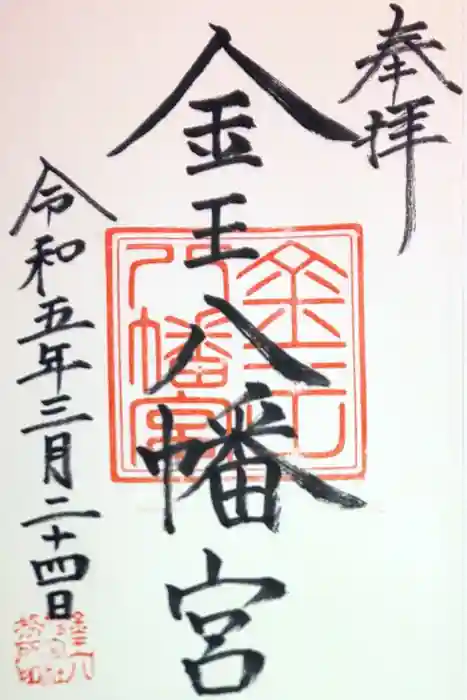 奉拝
金王八幡宮
金王八幡宮
令和五年三月二十四日